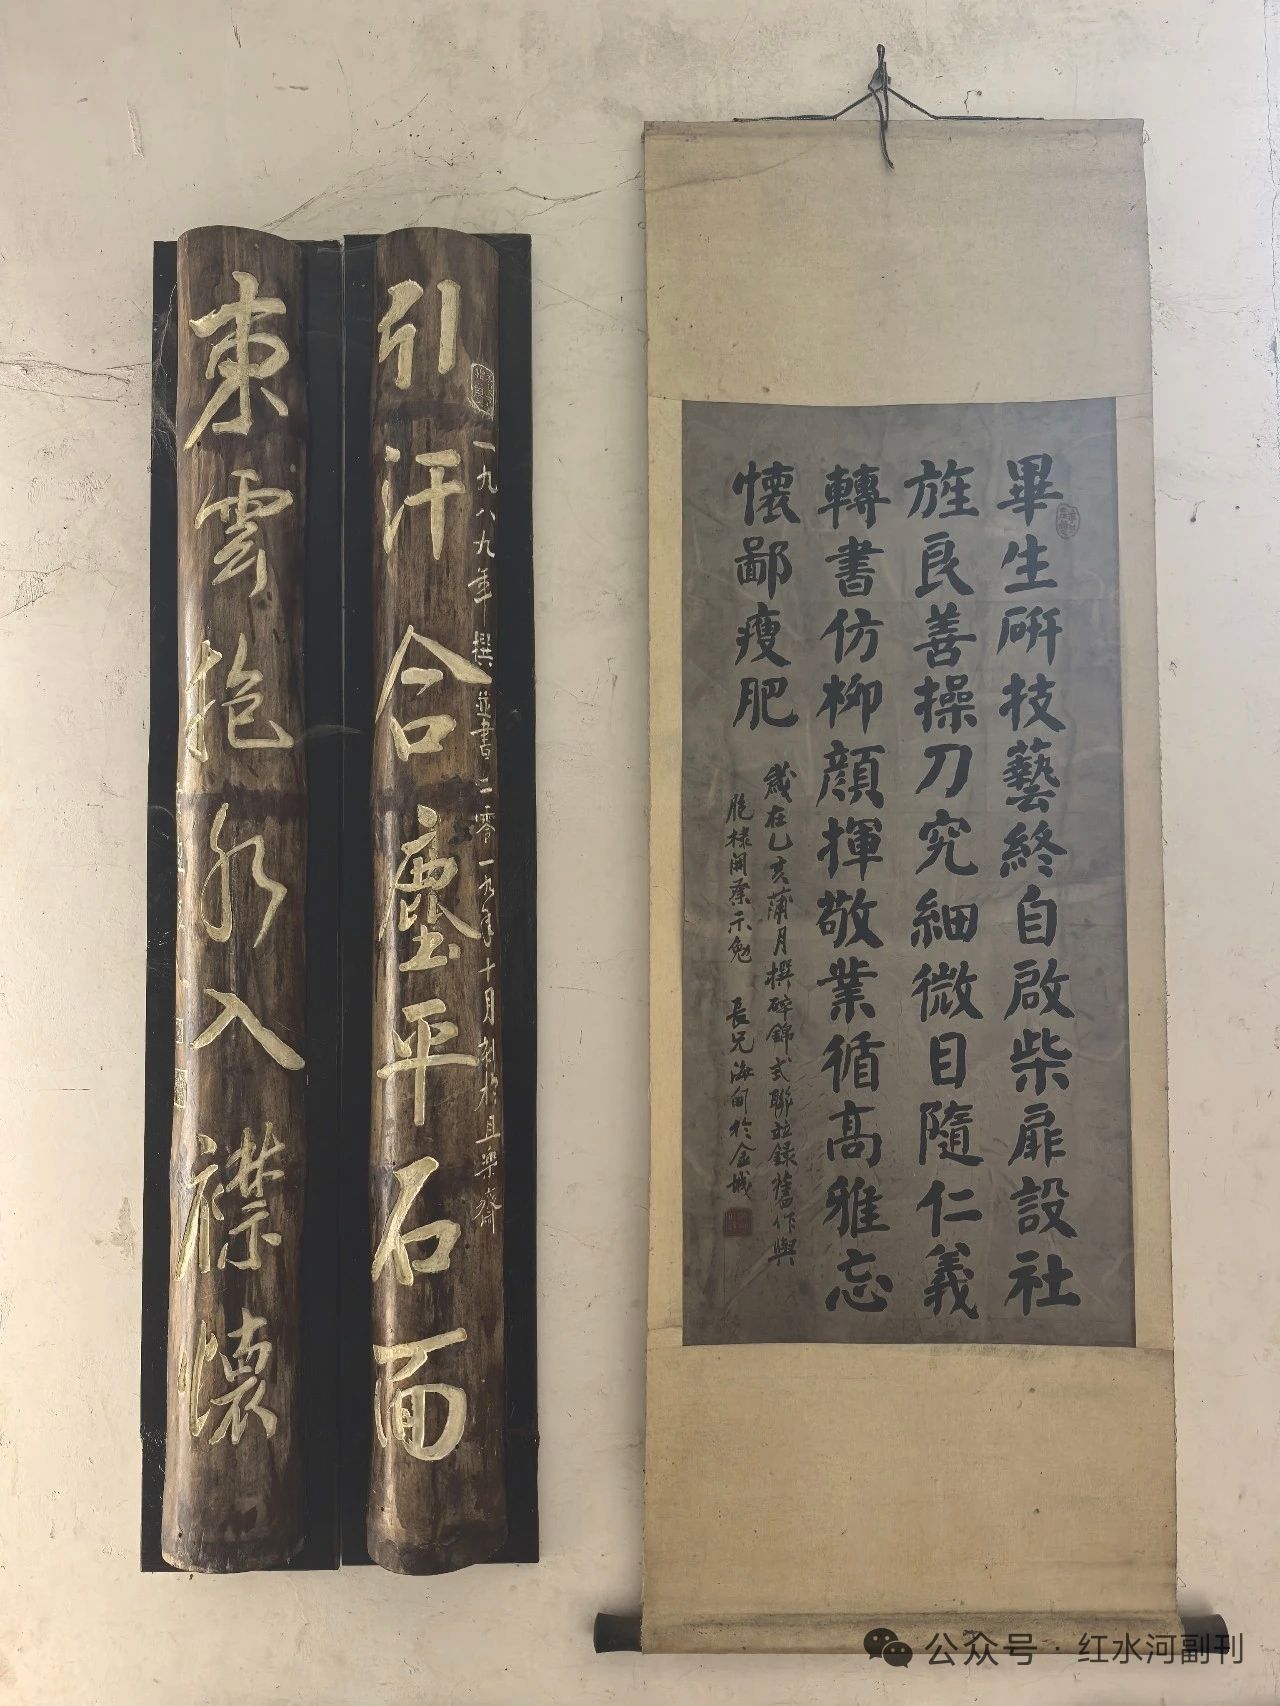 畢生研技藝終自啟柴扉設社
旌良善操刀究細微目隨仁義
轉書仿柳顏揮敬業循高雅忘
懷鄙瘦肥
歲在乙亥蒲月撰碎錦式聯並錄舊作與
胞棣開業示勉 長兄海甸於金城
一九八九年 撰並書二零一九年十月刻於且樂齋
引汗合塵平石面
東雲抱水入襟懷
公众号 · 红水河副刊